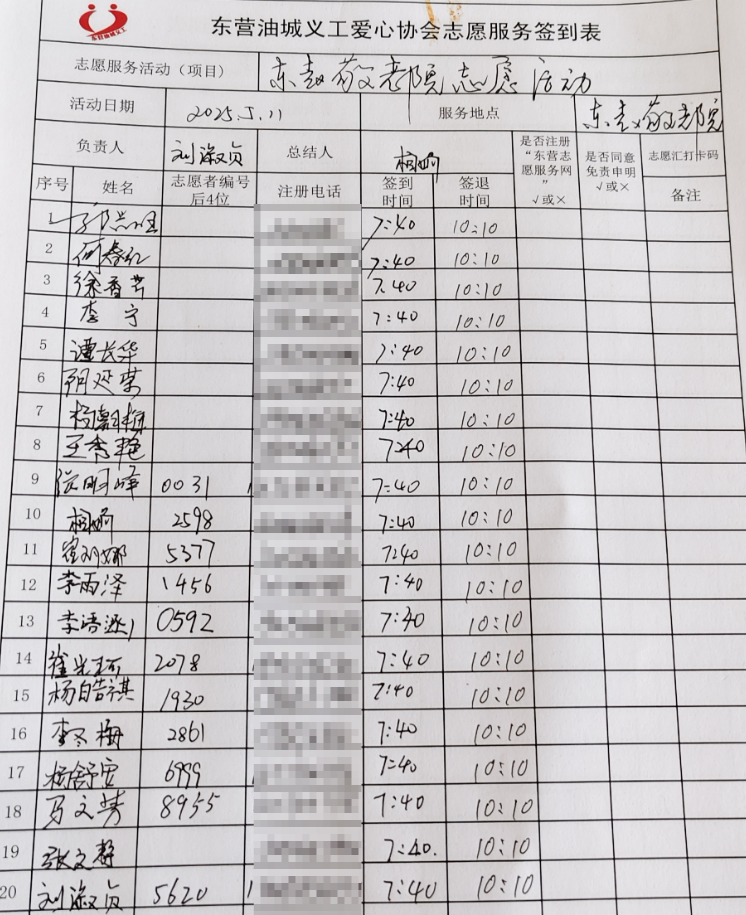 东营油城义工
东营油城义工爱心协会志愿服务签到表
志愿服务活动（项目） 东赵敬老院志愿活动
活动日期 2025.5.11 服务地点 东赵敬老院
负责人 刘淑贞 总结人 是否注册“东营志愿服务网” √或× 是否同意免责申明 √或× 志愿汇打卡码
序号 姓名 志愿者编号后4位 注册电话 签到时间 签退时间 备注
7:40 10:10
2 何春红 7:40 10:10
3 徐香芸 7:40 10:10
4 李宁 7:40 10:10
5 谭长华 7:40 10:10
6 胡延荣 7:40 10:10
7 7:40 10:10
8 王秀艳 7:40 10:10
9 明峰 0031 7:40 10:10
10 2598 7:40 10:10
11 崔娜 5377 7:40 10:10
12 李雨泽 1456 7:40 10:10
13 李语涵 0592 7:40 10:10
14 崔 2078 7:40 10:10
15 杨皓祺 1930 7:40 10:10
16 李冬梅 2861 7:40 10:10
17 杨舒安 6999 7:40 10:10
18 马文芳 8955 7:40 10:10
19 张文静 7:40. 10:10
20 刘淑贞 5620 7:40 10:10